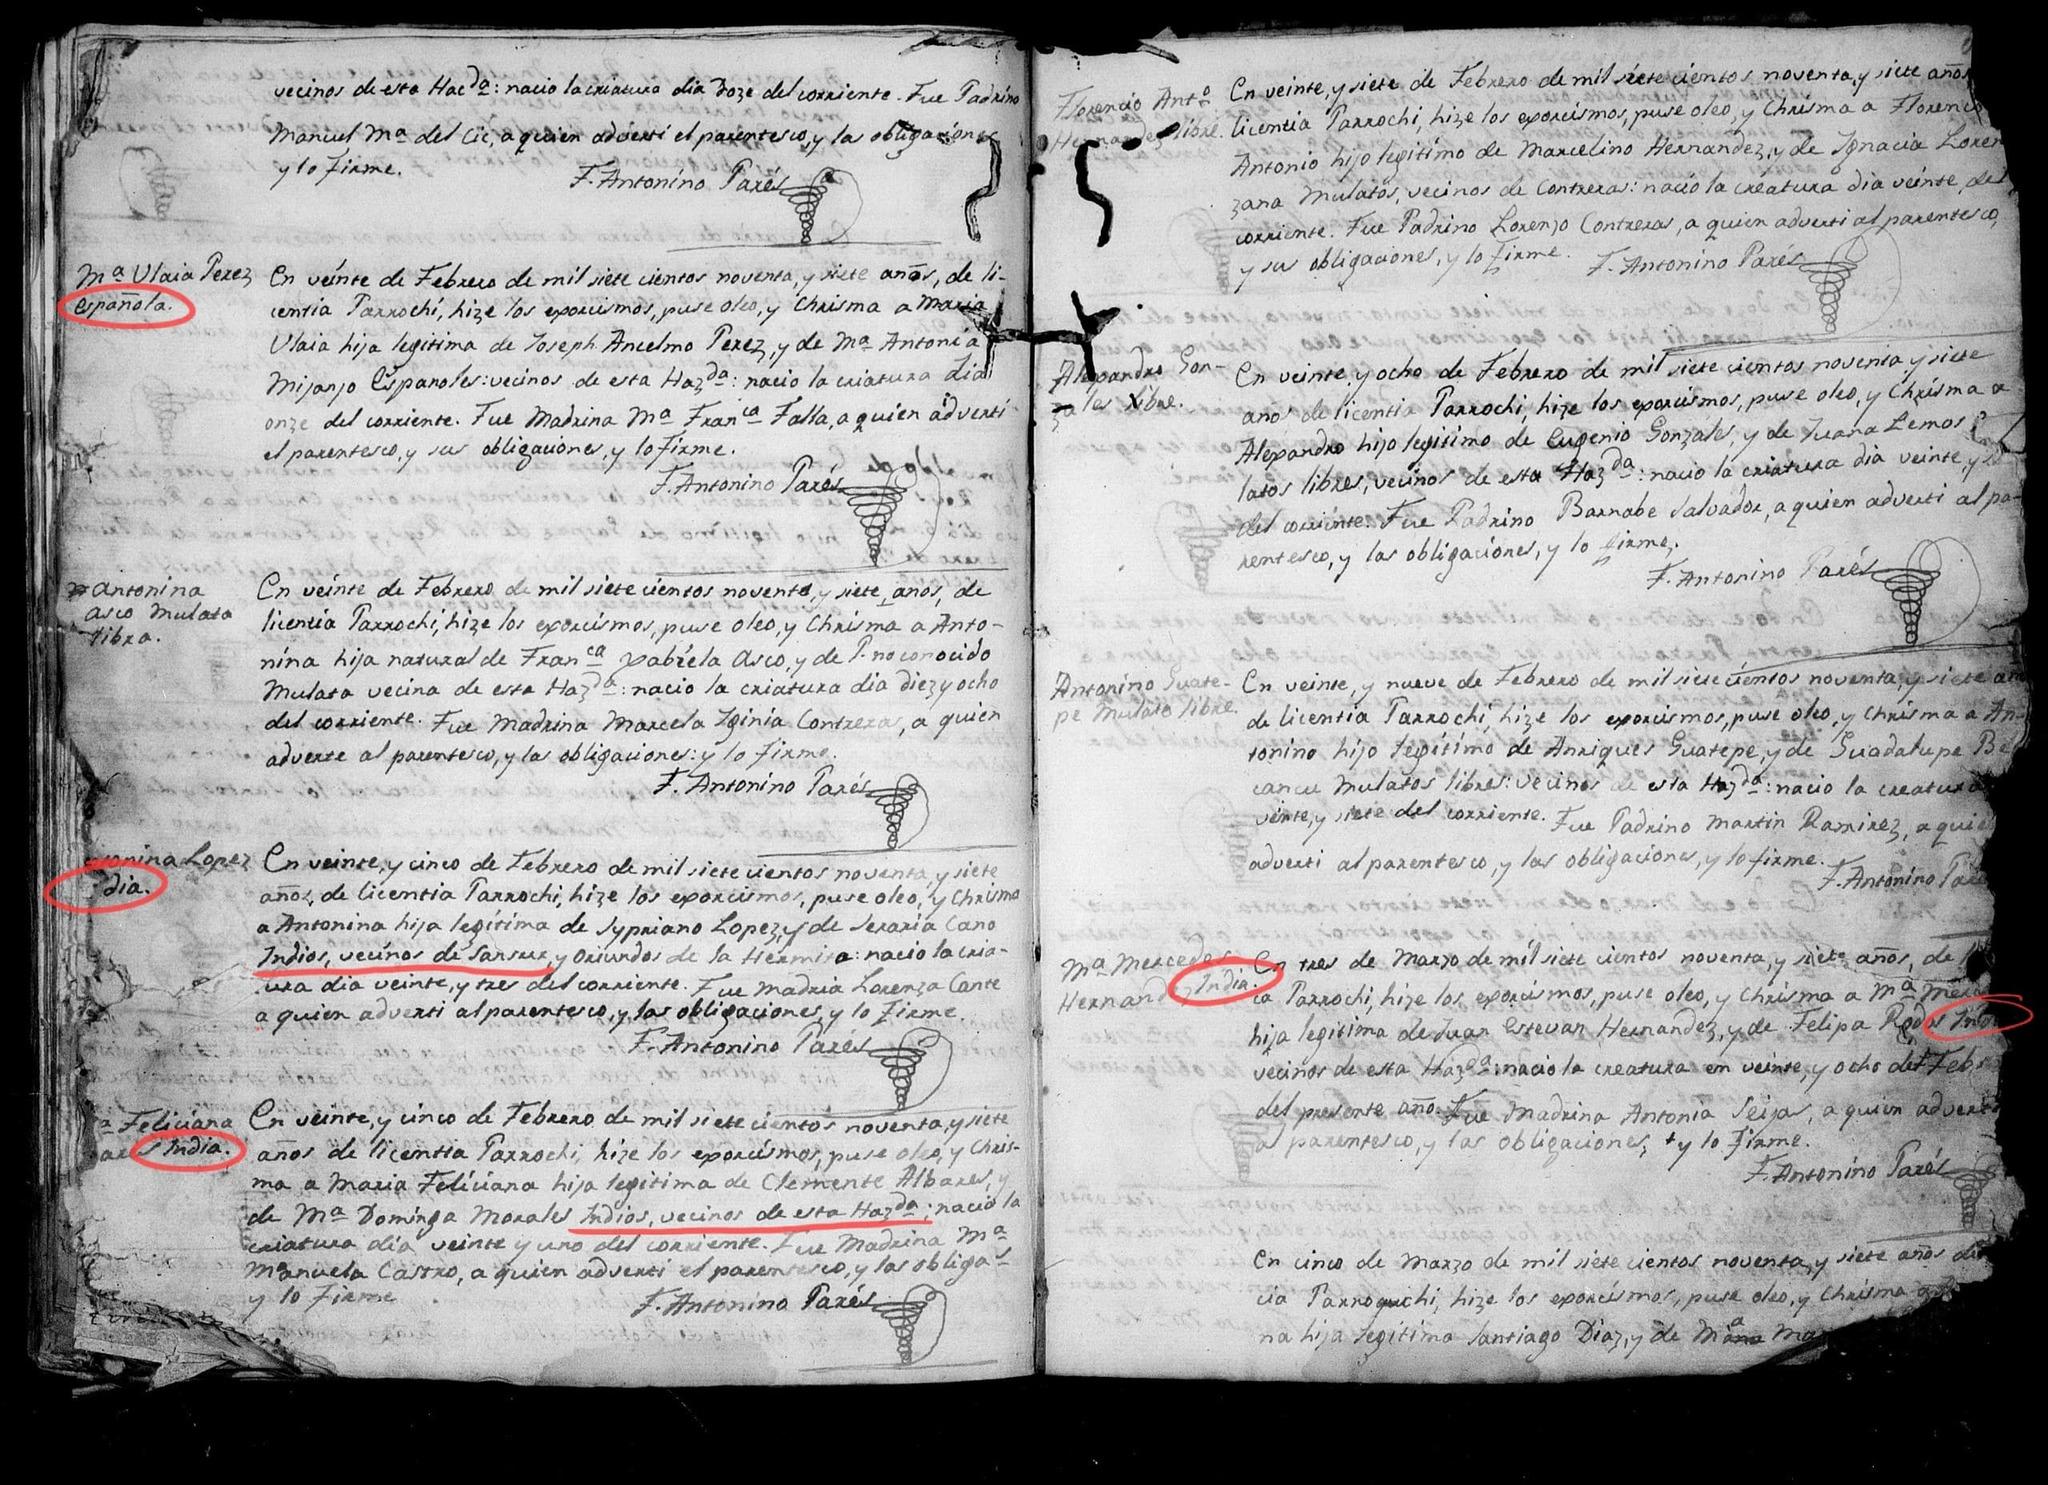 vecinos de esta Hacda: nacio la criatura dia Doze del corriente. Fue Padrino
Manuel Ma del Cic, a quien adverti el parentesco, y las obligaciones
y lo firme.
F. Antonino Parés
Ma Ulaia Perez
española.
En veinte de Febrero de mil siete cientos noventa, y siete años, de li-
centia Parrochi, hize los exorcismos, puse oleo, y Chrisma a Maria
Ulaia hija legitima de Joseph Ancelmo Perez, y de Ma Antonia
Mijanjo Españoles: vecinos de esta Hazda: nacio la criatura dia
onze del corriente. Fue Madrina Ma Franca Falla, a quien adverti
el parentesco, y sus obligaciones, y lo firme.
F. Antonino Parés
Antonina
asco Mulata
libra.
En veinte de Febrero de mil siete cientos noventa, y siete años, de
licentia Parrochi, hize los exorcismos, puse oleo, y Chrisma a Anto-
nina hija natural de Franca Xabiela Asco, y de P. no conocido
Mulata vecina de esta Hazda: nacio la criatura dia diez y ocho
del corriente. Fue Madrina Marcela Iginia Contreras, a quien
adverte al parentesco, y las obligaciones: y lo firme.
F. Antonino Parés
onina Lopez
dia.
En veinte, y cinco de Febrero de mil siete cientos noventa, y siete
años, de licentia Parrochi, hize los exorcismos, puse oleo, y Chrisma
a Antonina hija legitima de Sypriano Lopez, y de Seraria Cano
Indios, vecinos de Sansur, y oriundos de la Hermita: nacio la cria-
tura dia veinte, y tres del corriente. Fue madria Lorenza Cante
a quien adverti al parentesco, y las obligaciones, y lo firme.
F. Antonino Parés
a Feliciana
ares India.
En veinte, y cinco de Febrero de mil siete cientos noventa, y siete
años de licentia Parrochi, hize los exorcismos, puse oleo, y Chris-
ma a Maria Feliciana hija legitima de Clemente Albares, y
de Ma Dominga Morales Indios, vecinos de esta Hazda: nacio la
criatura dia veinte y uno del corriente. Fue Madrina Ma
Manuela Castro, a quien adverti el parentesco, y las obligas
y lo firme
F. Antonino Parés
Florencio Anto
Hernandez libre.
En veinte, y siete de Febrero de mil siete cientos noventa, y siete años
licentia Parrochi, hize los exorcismos, puse oleo, y Chrisma a Florenc
Antonio hijo legitimo de Marcelino Hernandez, y de Ignacia Loren
zana Mulatos, vecinos de Contreras: nacio la creatura dia veinte, del
corriente. Fue Padrino Lorenzo Contreras, a quien adverti al parentesco,
y sus obligaciones, y lo firme.
F. Antonino Parés
Alexandro Gon-
zales libre.
En veinte, y ocho de Febrero de mil siete cientos noventa y siete
años de licentia Parrochi, hize los exorcismos, puse oleo, y Chrisma a
Alexandro hijo legitimo de Eugenio Gonzales, y de Juana Lemos
latos libres, vecinos de esta Hazda: nacio la criatura dia veinte, y
del corriente. Fue Padrino Barnabe Salvador, a quien adverti al pa-
rentesco, y las obligaciones, y lo firme.
F. Antonino Parés
Antonino Guate-
pe Mulato libre.
En veinte, y nueve de Febrero de mil siete cientos noventa, y siete añ
de licentia Parrochi, hize los exorcismos, puse oleo, y Chrisma a An-
tonino hijo legitimo de Anriques Guatepe, y de Guadalupe Be
cancu Mulatos libres: vecinos de esta Hazda: nacio la creatura
veinte, y siete del corriente. Fue Padrino Martin Ramirez, a quie
adverti al parentesco, y las obligaciones, y lo firme.
F. Antonino Paré
Ma Mercedes
Hernandez India.
En tres de Marzo de mil siete cientos noventa, y siete años, de
ca Parrochi, hize los exorcismos, puse oleo, y Chrisma a Ma Merce
hija legitima de Juan Estevan Hernandez, y de Felipa Rodas Indi
vecinos de esta Hazda: nacio la creatura en veinte, y ocho del Feb
del presente año. Fue Madrina Antonia Seijas, a quien adverti
al parentesco, y las obligaciones, y lo firme.
F. Antonino Parés
En cinco de Marzo de mil siete cientos noventa, y siete años de
cia Parroquchi, hize los exorcismos, puse oleo, y Chrisma a
na hija legitima Santiago Diaz, y de Ma Ma